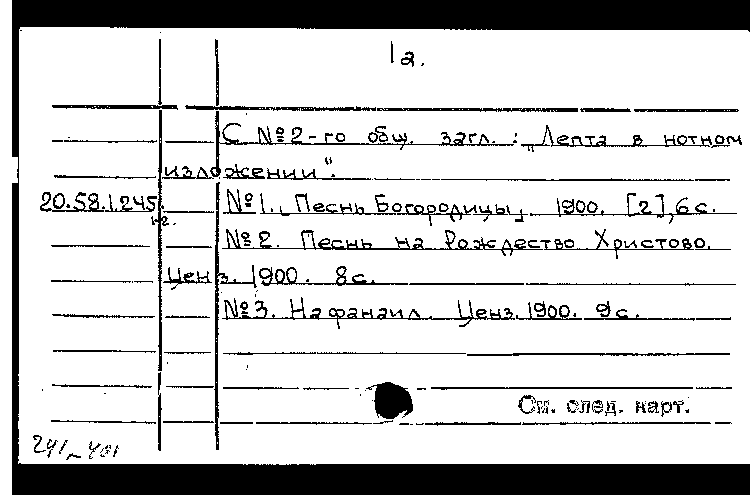 1а.
С №2-го общ. загл.: „Лепта в нотном
изложении".
20.58.1.245 №1. „Песнь Богородицы„. 1900. [2],6с.
1-2.
№2. Песнь на Рождество Христово.
Ценз. 1900. 8с.
№3. Нафанаил. Ценз. 1900. 9с.
См. след. карт.